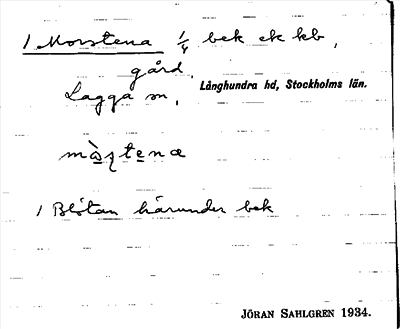 1 Morstena 1/4 bek ek kb,
gård
Lagga sn, Långhundra hd, Stockholms län.
mὰʂtena
1 Blötan härunder bek
JÖRAN SAHLGREN 1934.